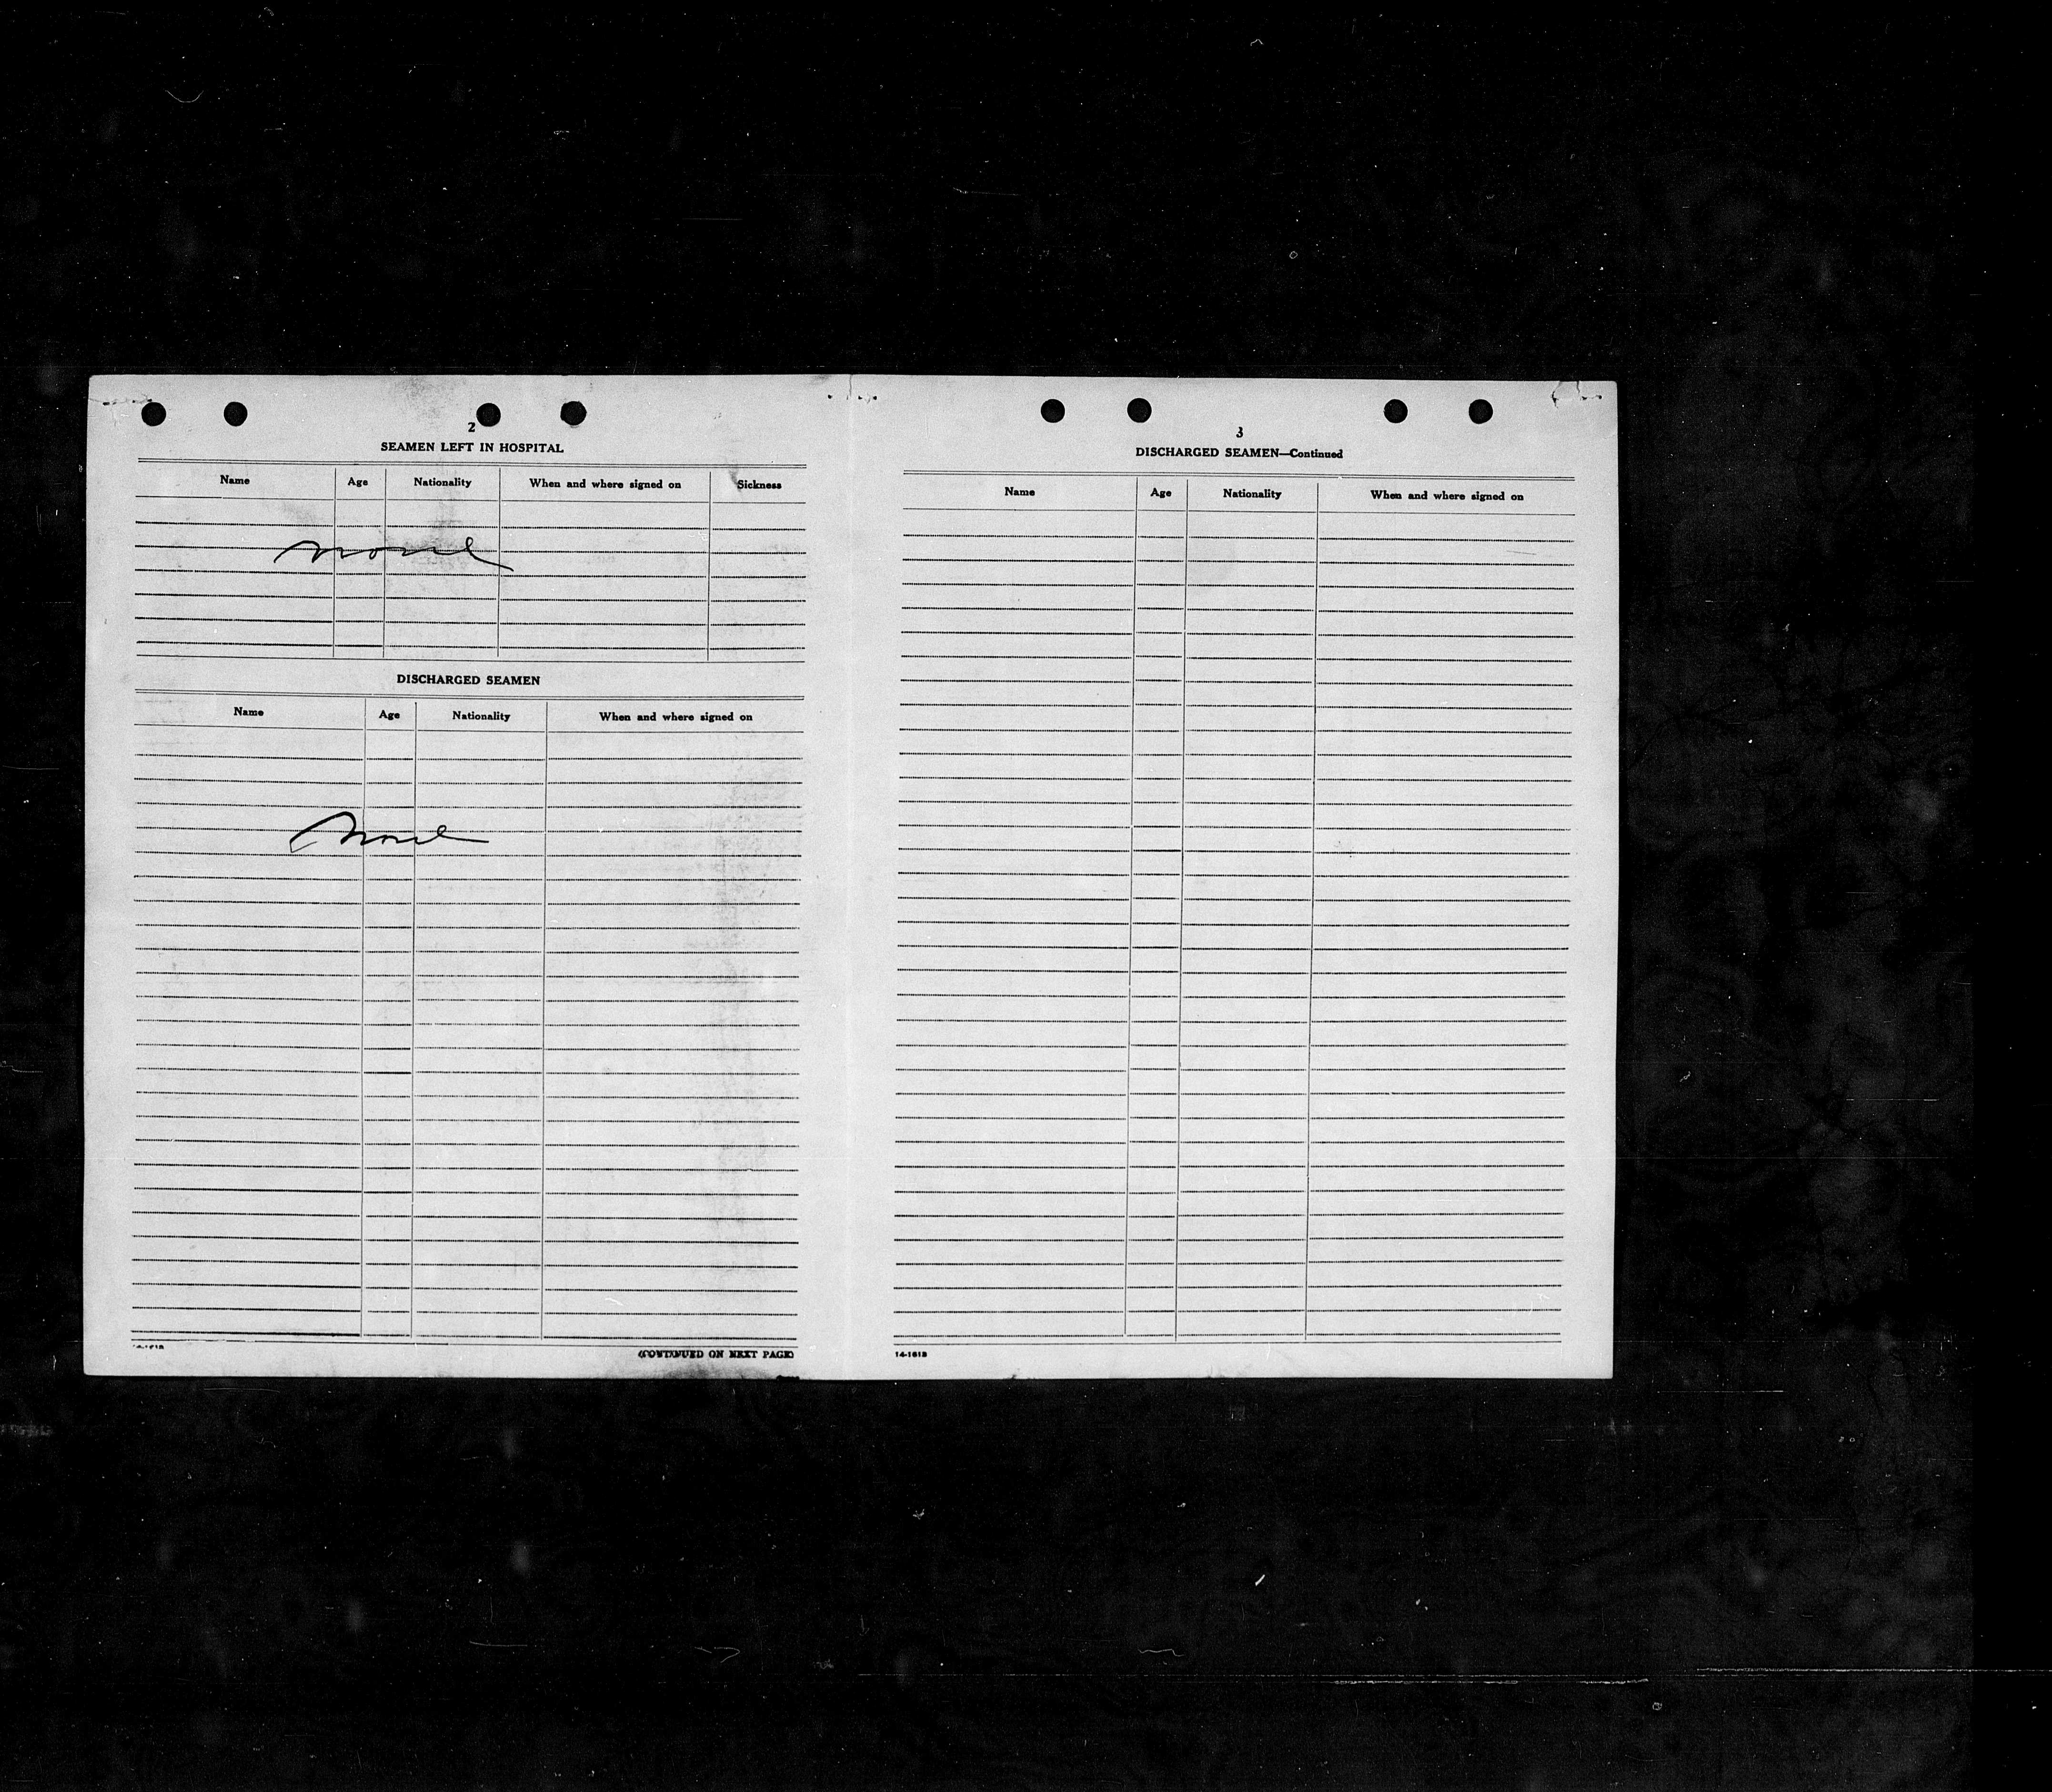 2
SEAMEN LEFT IN HOSPITAL
Name Age Nationality When and where signed on Sickness
None
DISCHARGED SEAMEN
Name Age Nationality When and where signed on
None
(CONTINUED ON NEXT PAGE)
3
DISCHARGED SEAMEN—Continued
Name Age Nationality When and where signed on
14-1613